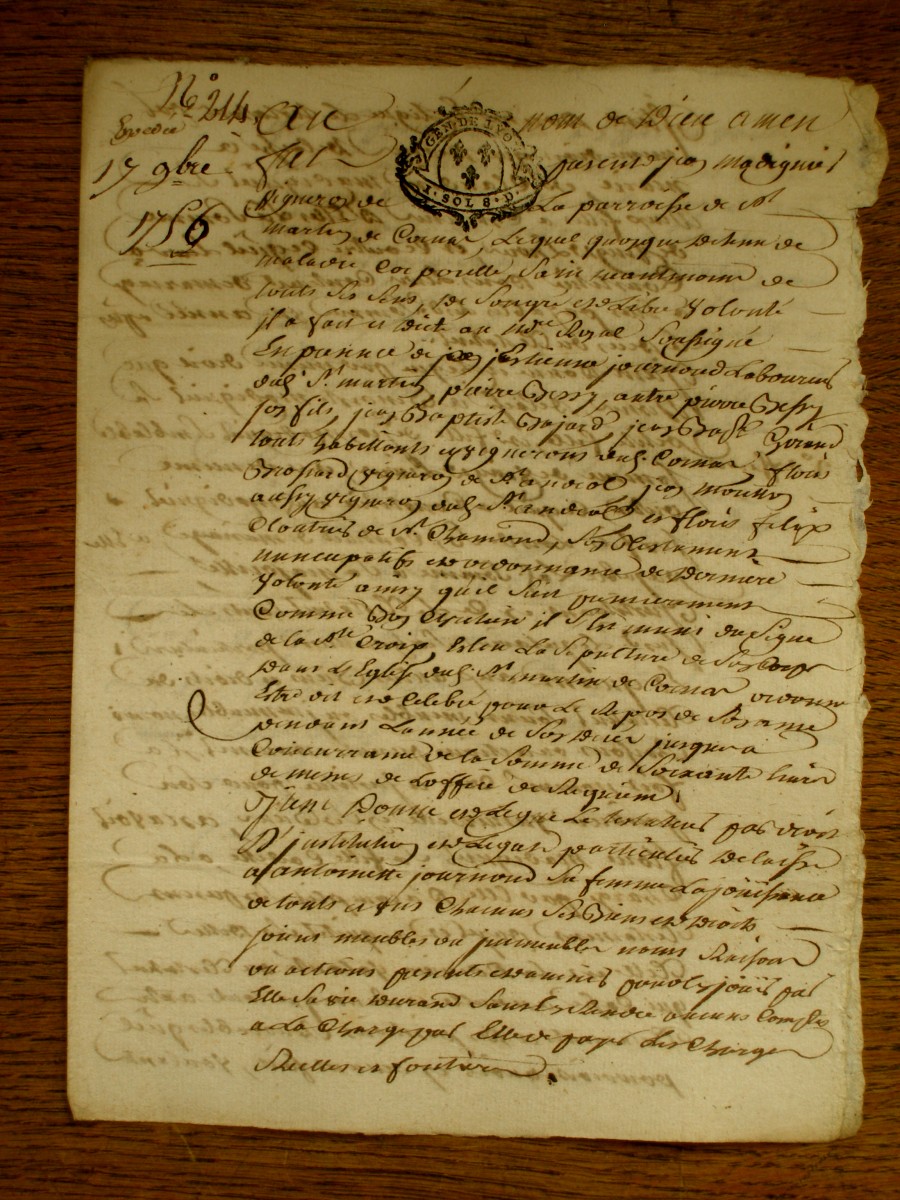 N.o 244
Expedié
17 9bre
1756
GEN. DE LYON
1. SOL 8. D.
Au nom de Dieu amen
fut present jean
vigneron de La parroisse de St
martin de Cornas, Lequel quoyque detenu de
maladie Corporelle, Sain neantmoins de
touts Ses Sens, de Son gré et Libre Volonté
il a fait et dicté au nore Royal Soussigné
En presence de Estienne journoud Laboureur
dudt St martin, pierre Bessy, autre pierre Bessy
son fils, jean Baptiste Bajard, jean Bapt
touts habittants et vignerons dudt Cornas, flory
Brossard vigneron de St andeol, jean
aussy vigneron dudt St andeol et flory
Cloutier de St Chamond, Son testament
nuncupatif et ordonnance de derniere
Volonté ainsy qu'il Suit premierement
Comme bon Chretien il S'est muni du Signe
de la Ste Croix, Esleu La Sepulture de Son Corps
dans L'Eglise dudt St martin de Cornas ordonne
Estre dit et Celebré pour Le Repos de Son ame
pendant L'année de Son deces jusques a
Concurrance de la Somme de Soixante livres
de messes de L'office de Requiem,
Item donne et Legue Le testateur par droit
D'institution et Legat particulier delaisse
a antoinette journoud Sa femme La joüissance
de touts et uns Chacuns Ses Biens et droits
soient meubles ou immeubles noms Raisons
ou actions presents et avenirs pour en joüir par
Elle Sa vie durand Sans en Rendre aucuns Comptes
a La Charge par Elle de payer Les Charges
Reelles et foncieres